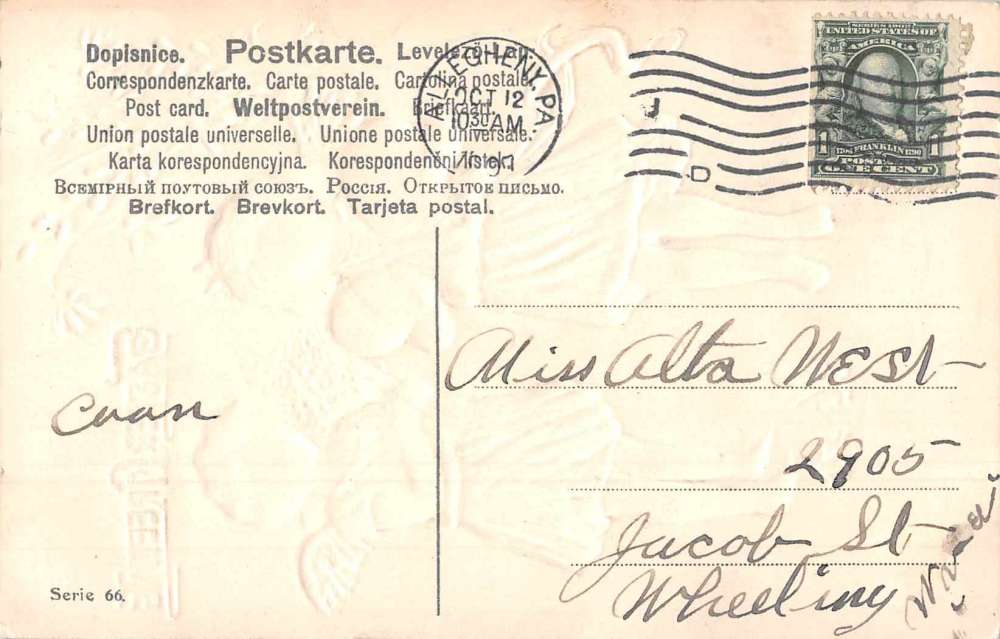 Dopisnice. Postkarte. Levelező-Lap.
Correspondenzkarte. Carte postale. Carolina postale
Post card. Weltpostverein. Briefkaart.
Union postale universelle. Unione postale universale.
Karta korespondencyjna. Korespondenční lístek.
Всемірный поутовый союзъ. Россія. Открытое письмо.
Brefkort. Brevkort. Tarjeta postal.
ALLEGHENY, PA.
OCT 12
10 30 AM
D
SERIES 1902
UNITED STATES OF
AMERICA
1706 FRANKLIN 1790
1
POSTAGE
ONE CENT
Miss Alta West
2905
Jacob St
Wheeling
Serie 66.